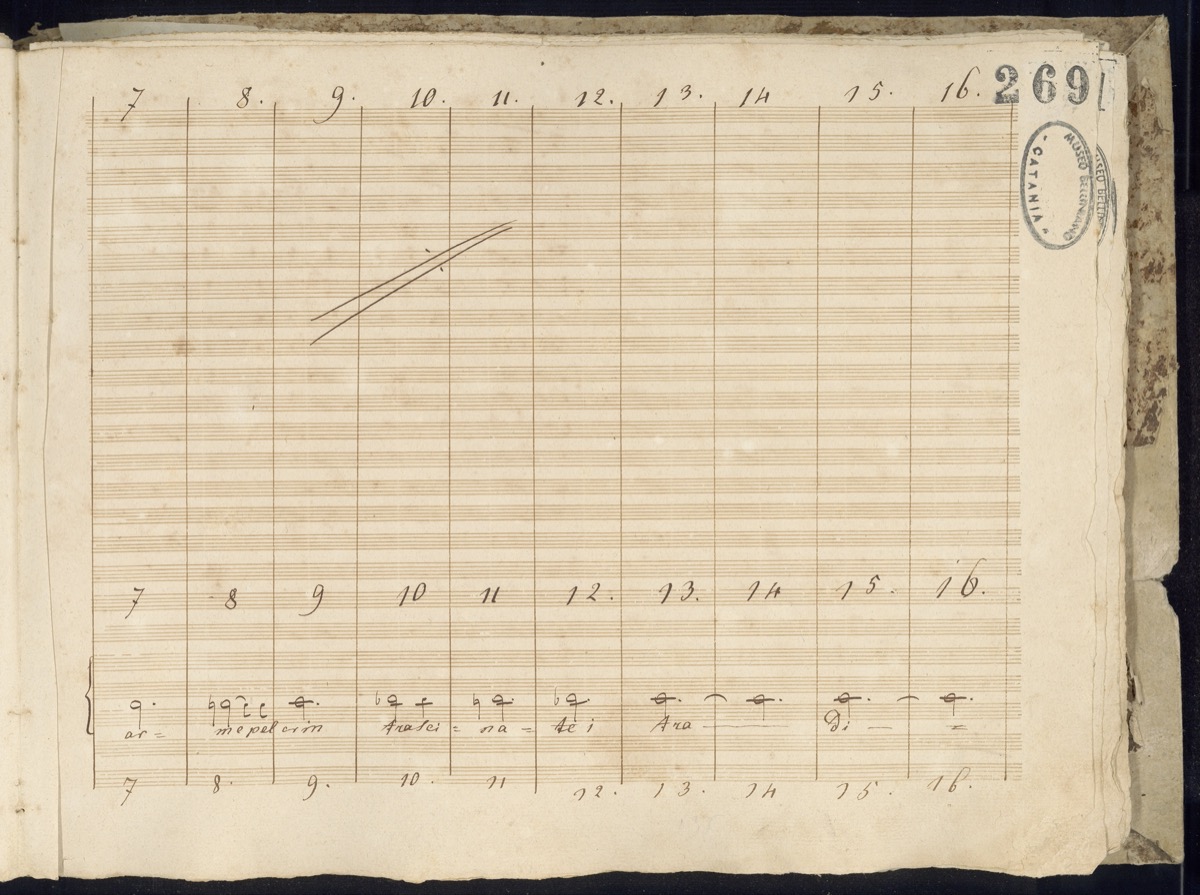 7 8. 9. 10. 11. 12. 13. 14 15. 16.
269
MUSEO BELLINIANO
- CATANIA -
7 8 9 10 11 12. 13. 14 15. 16.
ar= me pel crin trasci = na = te i tra — Di — =
7 8. 9. 10. 11 12. 13. 14 15. 16.